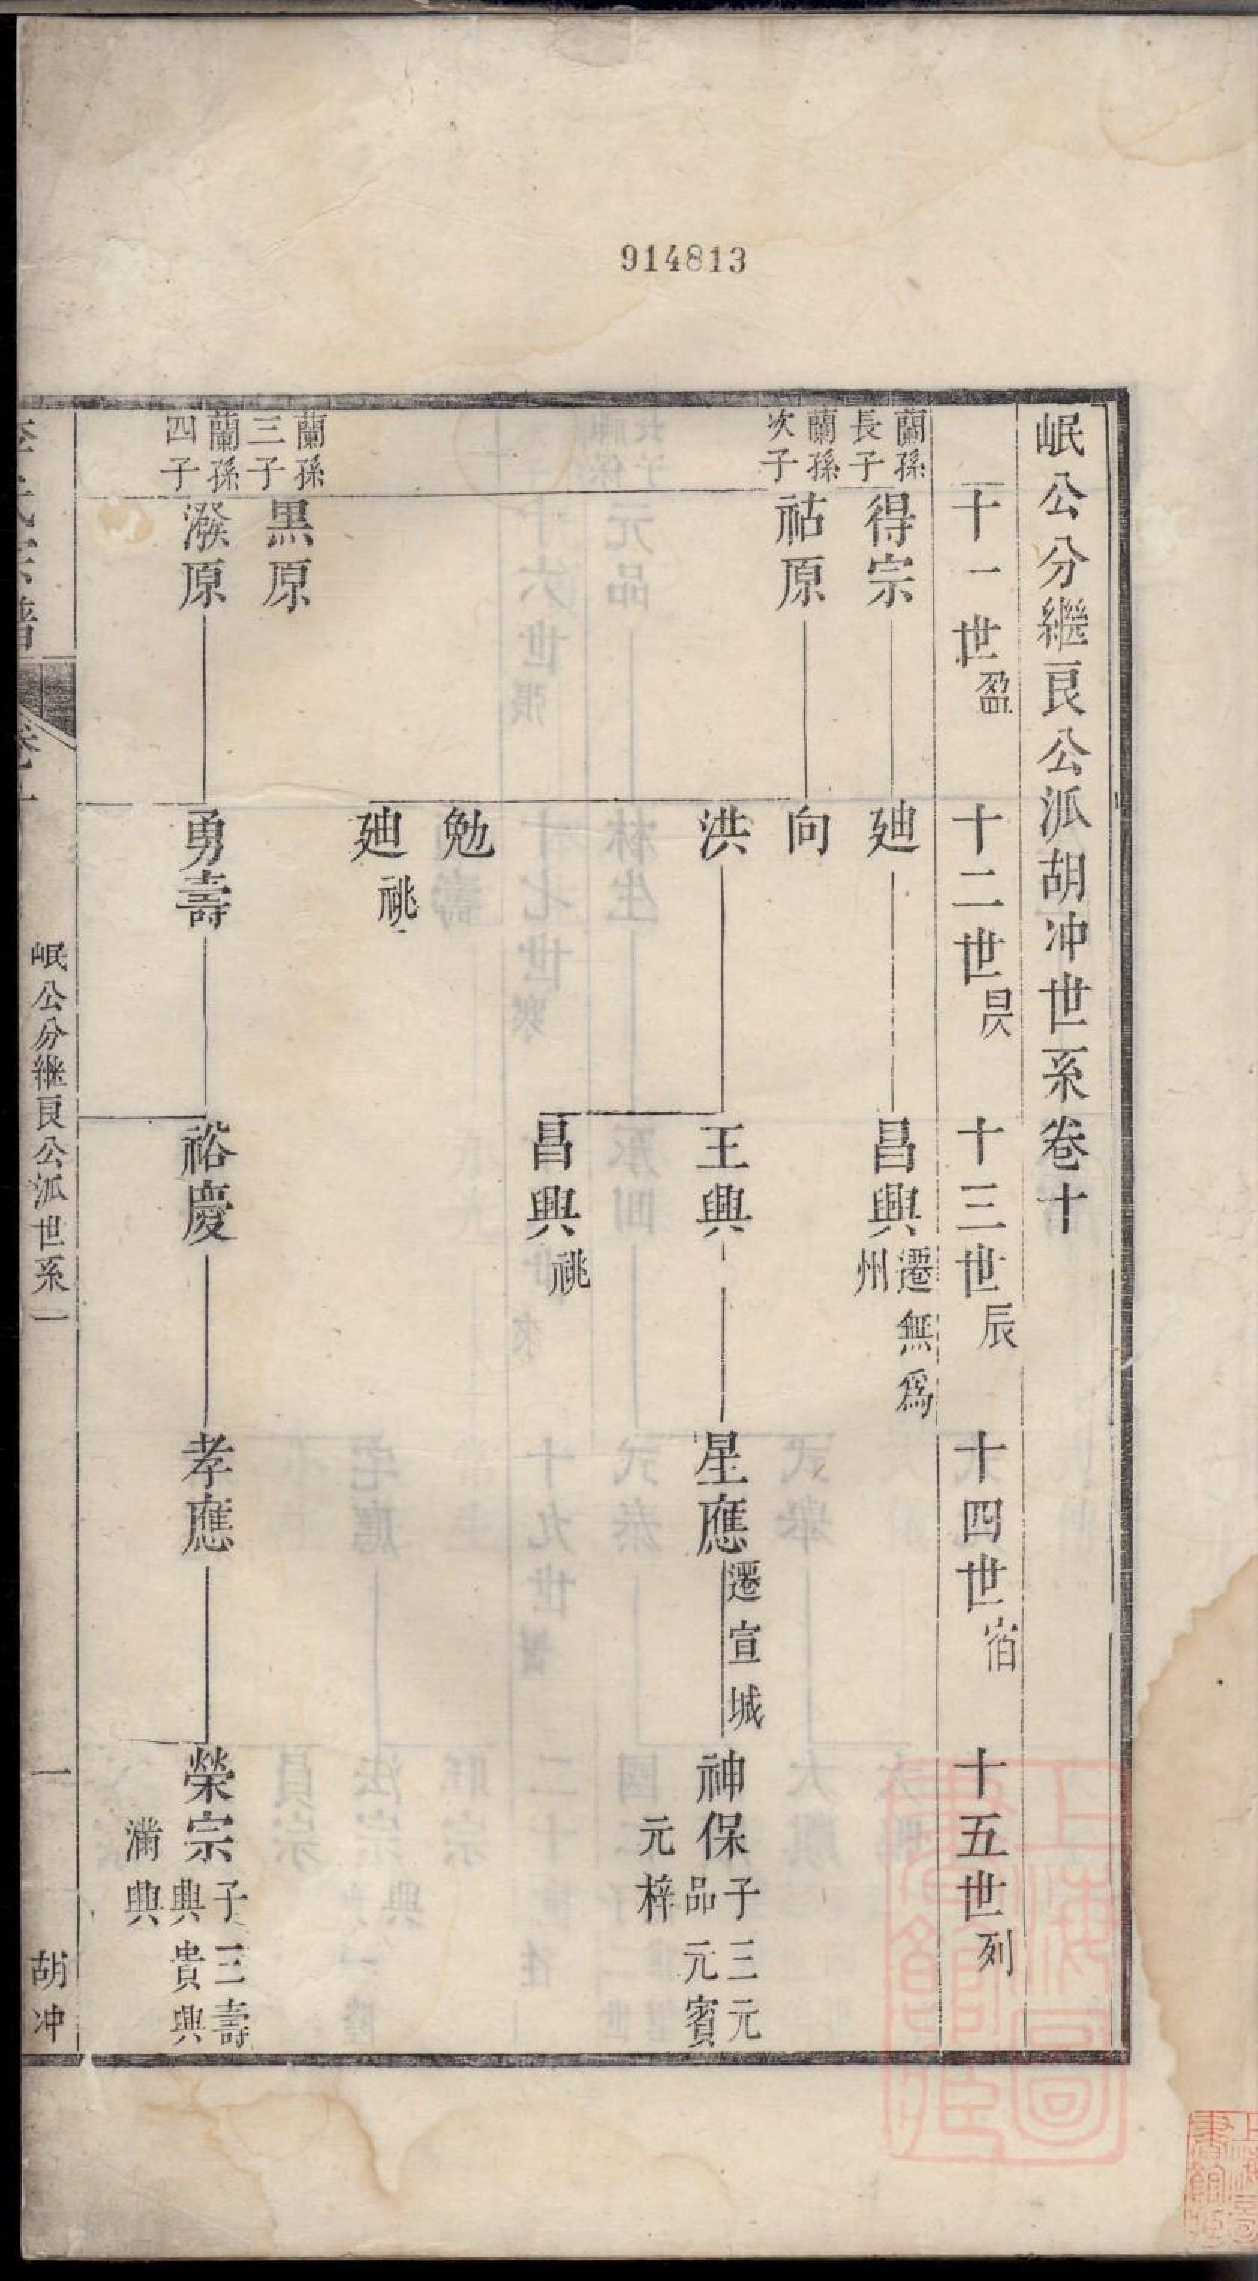 914813
岷公分繼艮公派胡冲世系卷十
十一世盈 十二世昃 十三世辰 十四世宿 十五世列
蘭孫長子 得宗 廸 昌興遷無為州
蘭孫次子 祜原 向
洪 王興 星應遷宣城 神保子三元品元賓元梓
昌興祧
勉
廸祧
蘭孫三子 黑原
蘭孫四子 潑原 勇壽 裕慶 孝應 榮宗子三壽興貴興滿興
卷十
岷公分繼艮公派世系一
一
胡冲
上海圖書館藏